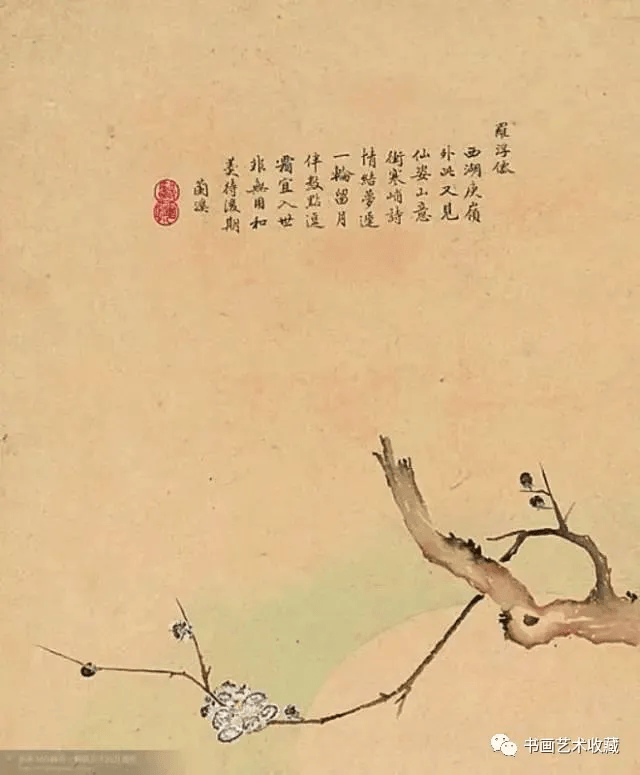 羅浮僊
西湖庾嶺
外此又見
仙姿山意
衝寒峭詩
情結夢遲
一輪留月
伴數點逗
霜宜入世
非無用和
羹待後期
蘭溪
书画艺术收藏